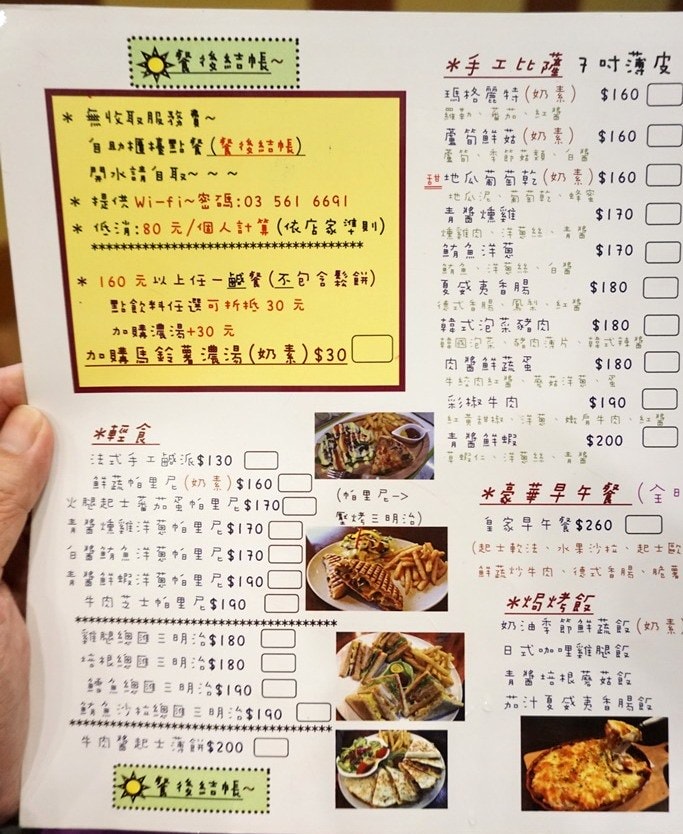 餐後結帳~
* 無收取服務費~
自助櫃檯點餐(餐後結帳)
開水請自取~~~
* 提供Wi-fi~密碼:03 561 6691
* 低消:80元/個人計算(依店家準則)
* 160元以上任一鹹餐(不包含鬆餅)
點飲料任選可折抵30元
加購濃湯+30元
加購馬鈴薯濃湯(奶素)$30
*輕食
法式手工鹹派$130
鮮蔬帕里尼(奶素)$160
火腿起士蕃茄蛋帕里尼$170
青醬燻雞洋蔥帕里尼$170
白醬鮪魚洋蔥帕里尼$170
青醬鮮蝦洋蔥帕里尼$190
牛肉芝士帕里尼$190
雞腿總匯三明治$180
培根總匯三明治$180
鱈魚總匯三明治$190
鮪魚沙拉總匯三明治$190
牛肉醬起士薄餅$200
餐後結帳~
(帕里尼->
壓烤三明治)
*手工比薩 7吋薄皮
瑪格麗特(奶素) $160
羅勒、蕃茄、紅醬
蘆筍鮮菇(奶素) $160
蘆筍、季節菇類、白醬
甜地瓜葡萄乾(奶素)$160
地瓜泥、葡萄乾、蜂蜜
青醬燻雞 $170
燻雞肉、洋蔥絲、青醬
鮪魚洋蔥 $170
鮪魚、洋蔥絲、白醬
夏威夷香腸 $180
德式香腸、鳳梨、紅醬
韓式泡菜豬肉 $180
韓國泡菜、豬肉薄片、韓式辣醬
肉醬鮮蔬蛋 $180
牛絞肉紅醬、蘑菇洋蔥、蛋
彩椒牛肉 $190
紅黃甜椒、洋蔥、嫩肩牛肉、紅醬
青醬鮮蝦 $200
草蝦仁、洋蔥絲、青醬
*豪華早午餐(全日
皇家早午餐$260
(起士軟法、水果沙拉、起士歐
鮮蔬炒牛肉、德式香腸、脆薯
*焗烤飯
奶油季節鮮蔬飯(奶素
日式咖哩雞腿飯
青醬培根蘑菇飯
茄汁夏威夷香腸飯